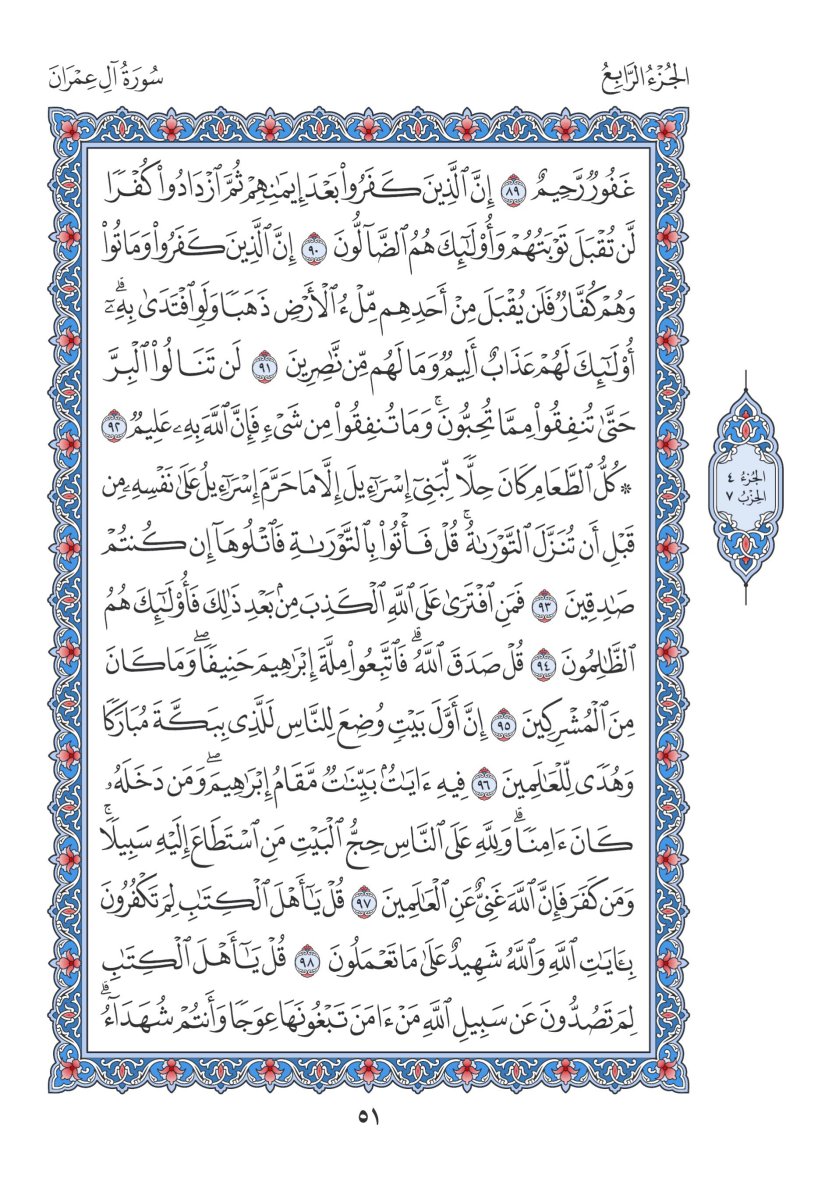 الجُزْءُ الرَّابِعُ
سُورَةُ آلِ عِمْرَانَ
غَفُورٌ رَّحِيمٌ ٨٩ إِنَّ ٱلَّذِينَ كَفَرُواْ بَعْدَ إِيمَٰنِهِمْ ثُمَّ ٱزْدَادُواْ كُفْرًا
لَّن تُقْبَلَ تَوْبَتُهُمْ وَأُوْلَٰٓئِكَ هُمُ ٱلضَّآلُّونَ ٩٠ إِنَّ ٱلَّذِينَ كَفَرُواْ وَمَاتُواْ
وَهُمْ كُفَّارٌ فَلَن يُقْبَلَ مِنْ أَحَدِهِم مِّلْءُ ٱلْأَرْضِ ذَهَبًا وَلَوِ ٱفْتَدَىٰ بِهِۦٓۗ
أُوْلَٰٓئِكَ لَهُمْ عَذَابٌ أَلِيمٌ وَمَا لَهُم مِّن نَّٰصِرِينَ ٩١ لَن تَنَالُواْ ٱلْبِرَّ
حَتَّىٰ تُنفِقُواْ مِمَّا تُحِبُّونَۚ وَمَا تُنفِقُواْ مِن شَىْءٍ فَإِنَّ ٱللَّهَ بِهِۦ عَلِيمٌ ٩٢
۞ كُلُّ ٱلطَّعَامِ كَانَ حِلًّا لِّبَنِىٓ إِسْرَٰٓءِيلَ إِلَّا مَا حَرَّمَ إِسْرَٰٓءِيلُ عَلَىٰ نَفْسِهِۦ مِن
قَبْلِ أَن تُنَزَّلَ ٱلتَّوْرَىٰةُۚ قُلْ فَأْتُواْ بِٱلتَّوْرَىٰةِ فَٱتْلُوهَآ إِن كُنتُمْ
صَٰدِقِينَ ٩٣ فَمَنِ ٱفْتَرَىٰ عَلَى ٱللَّهِ ٱلْكَذِبَ مِنۢ بَعْدِ ذَٰلِكَ فَأُوْلَٰٓئِكَ هُمُ
ٱلظَّٰلِمُونَ ٩٤ قُلْ صَدَقَ ٱللَّهُۗ فَٱتَّبِعُواْ مِلَّةَ إِبْرَٰهِيمَ حَنِيفًاۖ وَمَا كَانَ
مِنَ ٱلْمُشْرِكِينَ ٩٥ إِنَّ أَوَّلَ بَيْتٍ وُضِعَ لِلنَّاسِ لَلَّذِى بِبَكَّةَ مُبَارَكًا
وَهُدًى لِّلْعَٰلَمِينَ ٩٦ فِيهِ ءَايَٰتٌۢ بَيِّنَٰتٌ مَّقَامُ إِبْرَٰهِيمَۖ وَمَن دَخَلَهُۥ
كَانَ ءَامِنًاۗ وَلِلَّهِ عَلَى ٱلنَّاسِ حِجُّ ٱلْبَيْتِ مَنِ ٱسْتَطَاعَ إِلَيْهِ سَبِيلًاۚ
وَمَن كَفَرَ فَإِنَّ ٱللَّهَ غَنِىٌّ عَنِ ٱلْعَٰلَمِينَ ٩٧ قُلْ يَٰٓأَهْلَ ٱلْكِتَٰبِ لِمَ تَكْفُرُونَ
بِـَٔايَٰتِ ٱللَّهِ وَٱللَّهُ شَهِيدٌ عَلَىٰ مَا تَعْمَلُونَ ٩٨ قُلْ يَٰٓأَهْلَ ٱلْكِتَٰبِ
لِمَ تَصُدُّونَ عَن سَبِيلِ ٱللَّهِ مَنْ ءَامَنَ تَبْغُونَهَا عِوَجًا وَأَنتُمْ شُهَدَآءُۗ
الجُزْءُ ٤
الحِزْبُ ٧
٥١